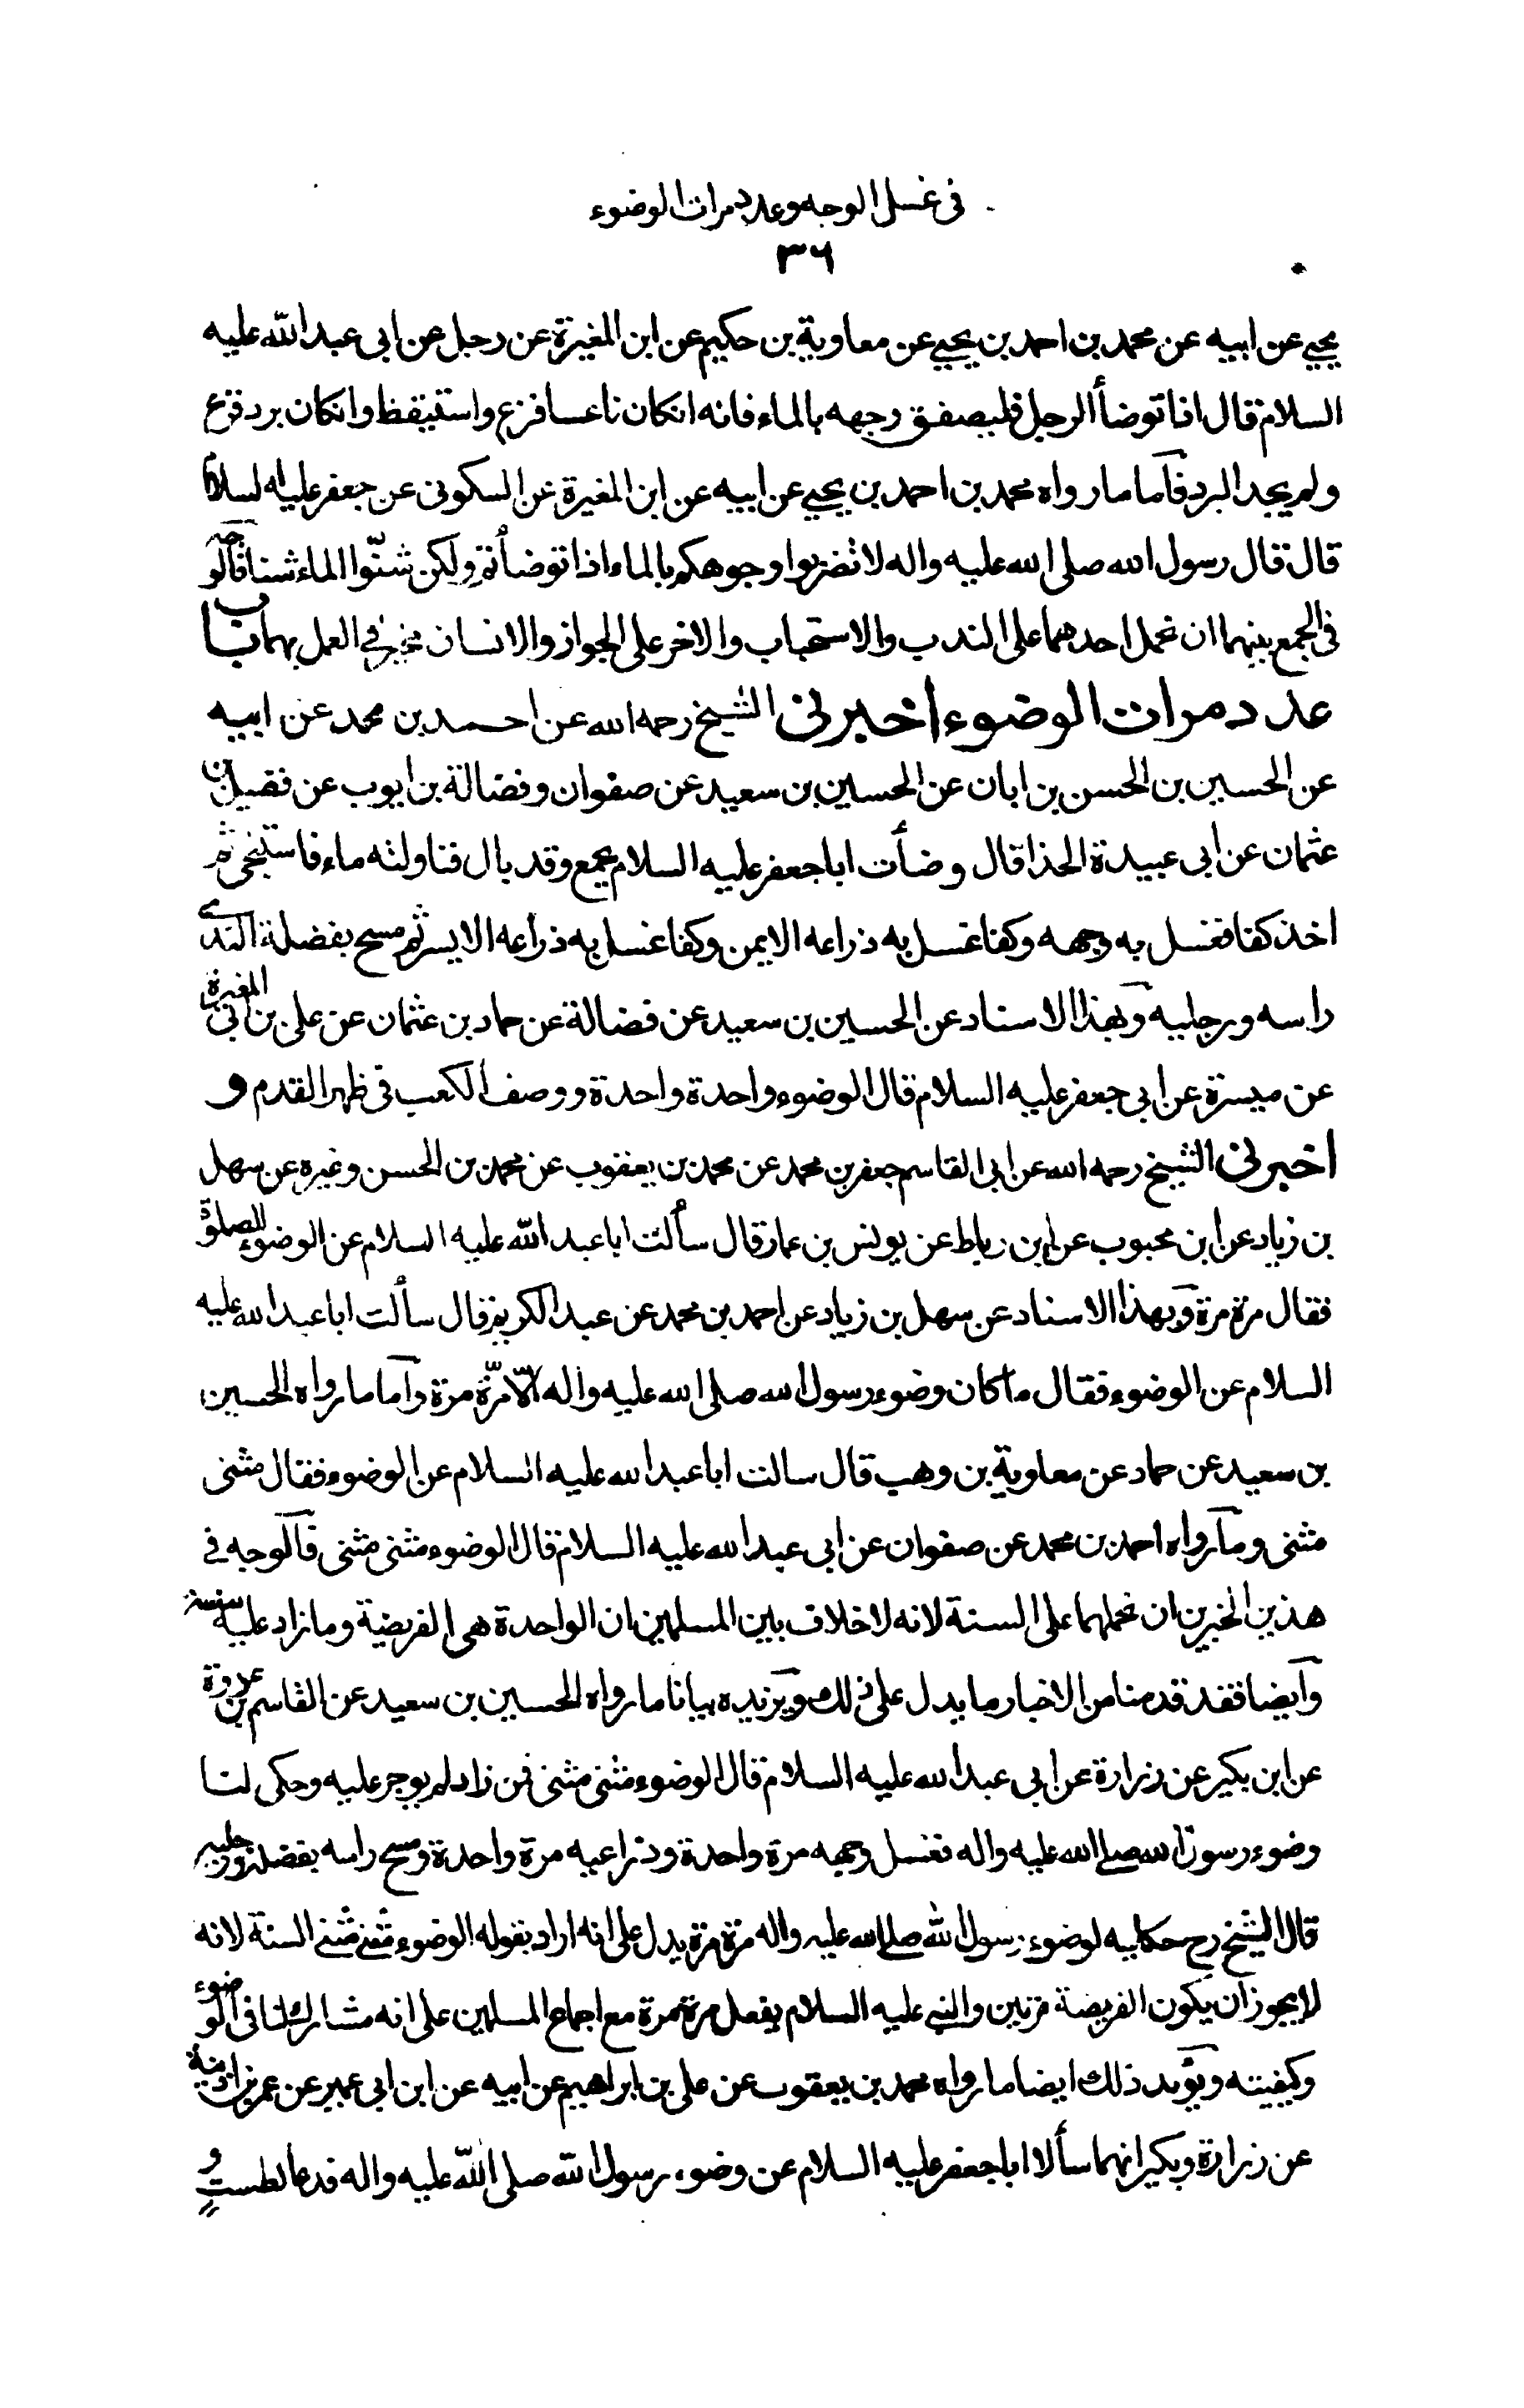 فى غسل الوجه وعدد مرات الوضوء
٣٦
يحيى عن ابيه عن محمد بن احمد بن يحيى عن معاوية بن حكيم عن ابن المغيرة عن رجل عن ابى عبد الله عليه
السلام قال اذا توضأ الرجل فليصفق وجهه بالماء فانه انكان ناعسا فزع واستيقظ وانكان برد فزع
ولم يجد البرد فاما ما رواه محمد بن احمد بن يحيى عن ابيه عن ابن المغيرة عن السكونى عن جعفر عليه السلام
قال قال رسول الله صلى الله عليه واله لا تضربوا وجوهكم بالماء اذا توضأتم ولكن شنّوا الماء شنا فالوجه
فى الجمع بينهما ان نحمل احدهما على الندب والاستحباب والاخر على الجواز والانسان مخير فى العمل بهما باب
عدد مرات الوضوء اخبرنى الشيخ رحمه الله عن احمد بن محمد عن ابيه
عن الحسين بن الحسن بن ابان عن الحسين بن سعيد عن صفوان وفضالة بن ايوب عن فضيل بن
عثمان عن ابى عبيدة الحذا قال وضأت ابا جعفر عليه السلام بجمع وقد بال فناولته ماء فاستنجى ثم
اخذ كفا فغسل به وجهه وكفا غسل به ذراعه الايمن وكفا غسل به ذراعه الايسر ثم مسح بفضلة الندى
راسه ورجليه وبهذا الاسناد عن الحسين بن سعيد عن فضالة عن حماد بن عثمان عن على بن ابى المغيرة
عن ميسرة عن ابى جعفر عليه السلام قال الوضوء واحدة واحدة ووصف الكعب فى ظهر القدم و
اخبرنى الشيخ رحمه الله عن ابى القاسم جعفر بن محمد عن محمد بن يعقوب عن محمد بن الحسن وغيره عن سهل
بن زياد عن ابن محبوب عن ابن رباط عن يونس بن عمار قال سألت ابا عبد الله عليه السلام عن الوضوء للصلوة
فقال مرة مرة وبهذا الاسناد عن سهل بن زياد عن احمد بن محمد عن عبد الكريم قال سألت ابا عبد الله عليه
السلام عن الوضوء فقال ما كان وضوء رسول الله صلى الله عليه واله الّا مرّة مرة واما ما رواه الحسين
بن سعيد عن حماد عن معاوية بن وهب قال سالت ابا عبد الله عليه السلام عن الوضوء فقال مثنى
مثنى وما رواه احمد بن محمد عن صفوان عن ابى عبد الله عليه السلام قال الوضوء مثنى مثنى فالوجه فى
هذين الخبرين ان نحملهما على السنة لانه لا خلاف بين المسلمين ان الواحدة هى الفريضة وما زاد عليه سنة
وايضا فقد قدمنا من الاخبار ما يدل على ذلك ويزيده بيانا ما رواه الحسين بن سعيد عن القاسم بن عروة
عن ابن بكير عن زرارة عن ابى عبد الله عليه السلام قال الوضوء مثنى مثنى فمن زاد لم يوجر عليه وحكى لنا
وضوء رسول الله صلى الله عليه واله فغسل وجهه مرة واحدة وذراعيه مرة واحدة ومسح راسه بفضله ورجليه
قال الشيخ رح حكايه لوضوء رسول الله صلى الله عليه واله مرة مرة يدل على انه اراد بقوله الوضوء مثنى مثنى السنة لانه
لا يجوز ان يكون الفريضة مرتين والنبى عليه السلام يفعل مرة مرة مع اجماع المسلمين على انه مشارك لنا فى الوضوء
وكيفيته ويؤيد ذلك ايضا ما رواه محمد بن يعقوب عن على بن ابراهيم عن ابيه عن ابن ابى عمير عن عمر بن اذينة
عن زرارة وبكير انهما سألا ابا جعفر عليه السلام عن وضوء رسول الله صلى الله عليه واله فدعا بطست